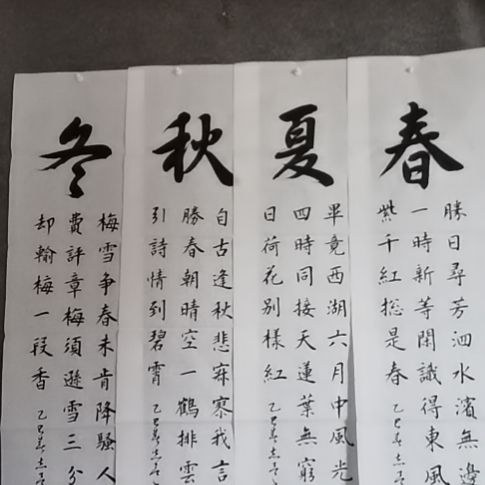 春
勝日尋芳泗水濱無邊
一時新等閑識得東風
紫千紅総是春
乙巳春
夏
畢竟西湖六月中風光
四時同接天蓮葉無窮
日荷花別樣紅
乙巳春
秋
自古逢秋悲寂寥我言
勝春朝晴空一鶴排雲
引詩情到碧霄
乙巳春
冬
梅雪争春未肯降騷人
費評章梅須遜雪三分
却輸梅一段香
乙巳春